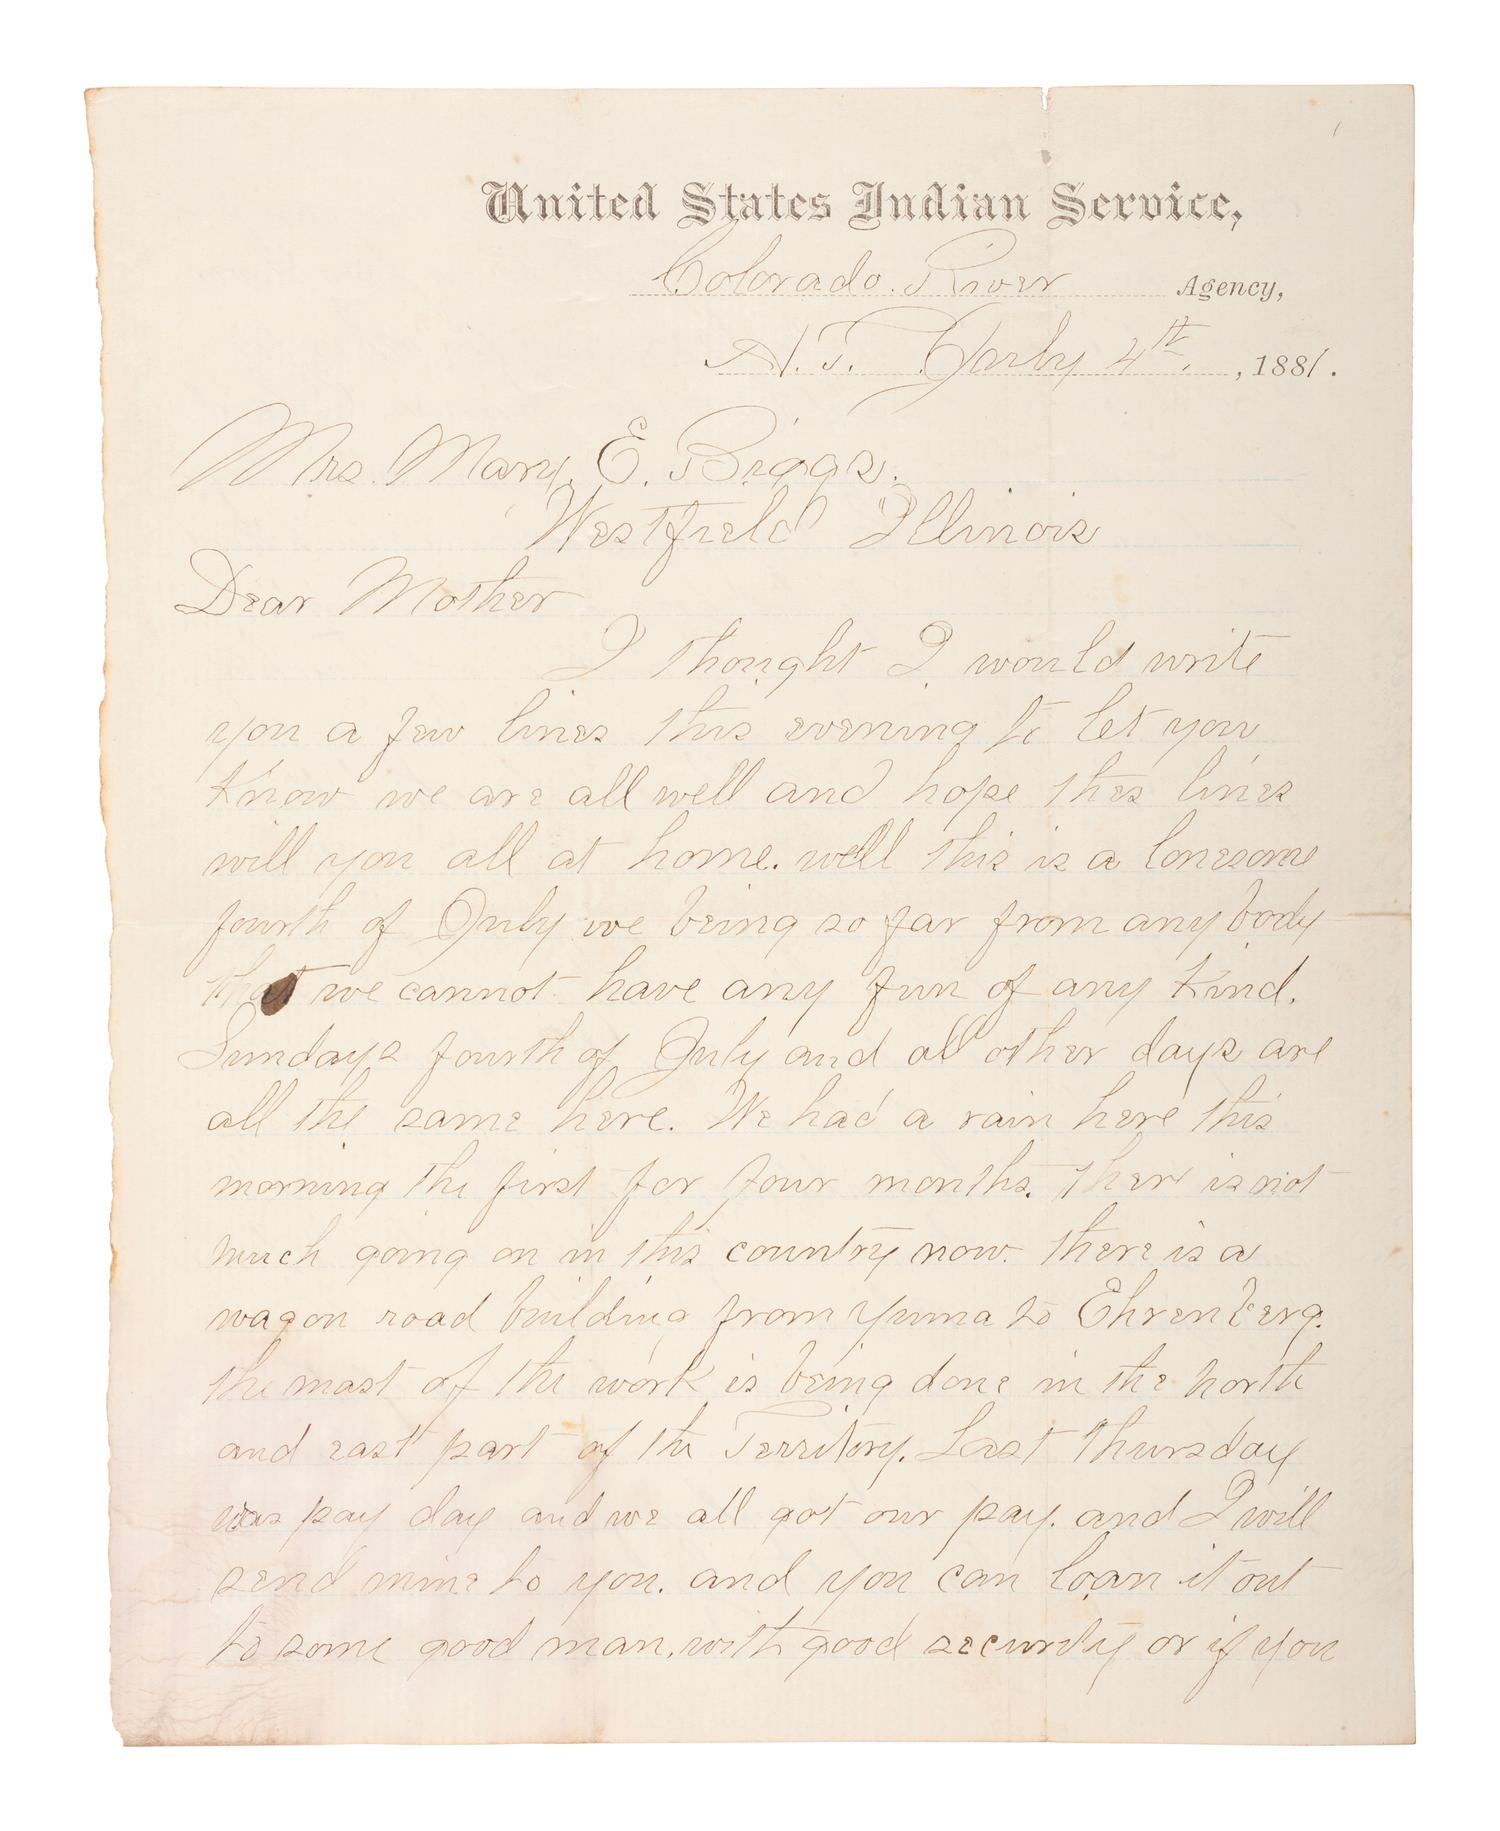 United States Indian Service,
Colorado River Agency,
A. T. July 4th, 1881.
Mrs. Mary. E. Briggs.
Westfield Illinois
Dear Mother
I thought I would write
you a few lines this evening to let you
know we are all well and hope thes lines
will you all at home. well this is a lonesome
fourth of July we being so far from any body
that we cannot have any fun of any kind.
Sundays fourth of July and all other days are
all the same here. We had a rain here this
morning the first for four months. ther is not
much going on in this country now. there is a
wagon road building from Yuma to Ehrenberg.
the most of the work is being done in the north
and east part of the Territory. Last Thursday
was pay day and we all got our pay. and I will
send mine to you. and you can loan it out
to some good man. with good security or if you